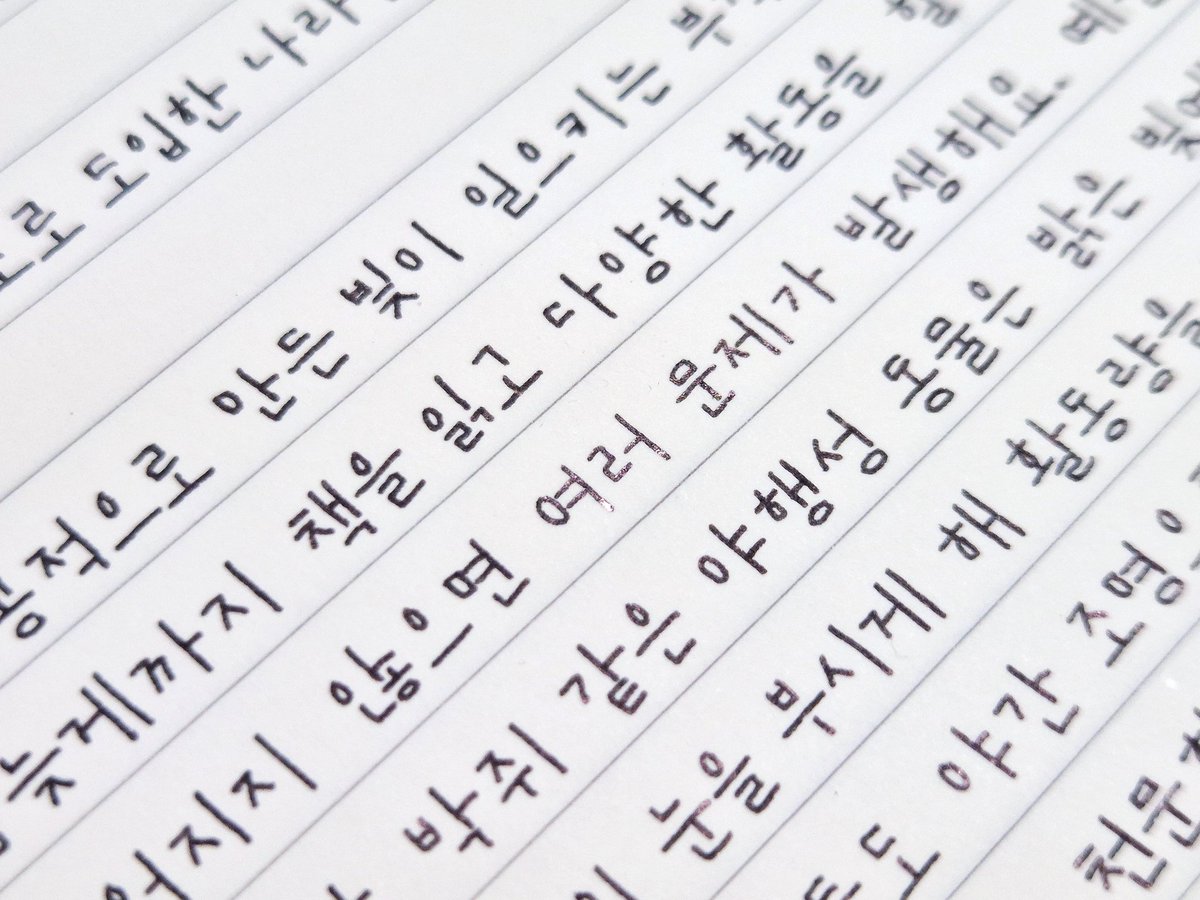 로 도입한 나라
공적으로 만든 빛이 일으키는
늦게까지 책을 읽고 다양한 활동을
어지지 않으면 여러 문제가 발생해요.
박쥐 같은 야행성 동물은 밝은
눈을 부시게 해 활동량을
도 야간 조명